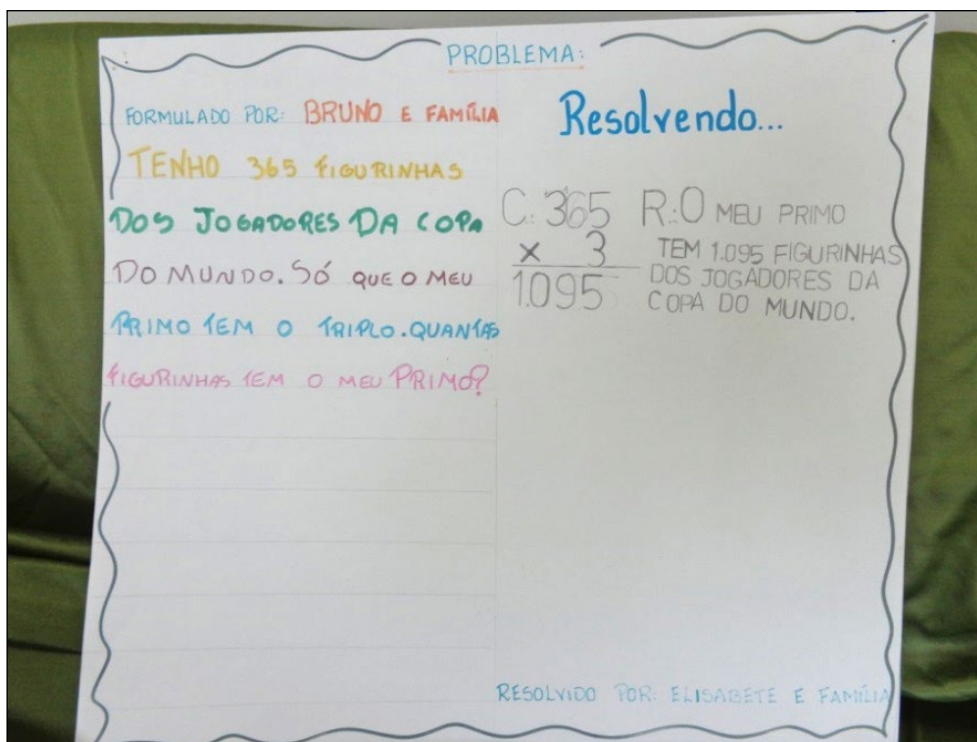 PROBLEMA:
FORMULADO POR: BRUNO E FAMÍLIA
TENHO 365 FIGURINHAS
DOS JOGADORES DA COPA
DO MUNDO. SÓ QUE O MEU
PRIMO TEM O TRIPLO. QUANTAS
FIGURINHAS TEM O MEU PRIMO?
Resolvendo...
C.: 365
x 3
1.095
R.: O MEU PRIMO
TEM 1.095 FIGURINHAS
DOS JOGADORES DA
COPA DO MUNDO.
RESOLVIDO POR: ELISABETE E FAMÍLIA